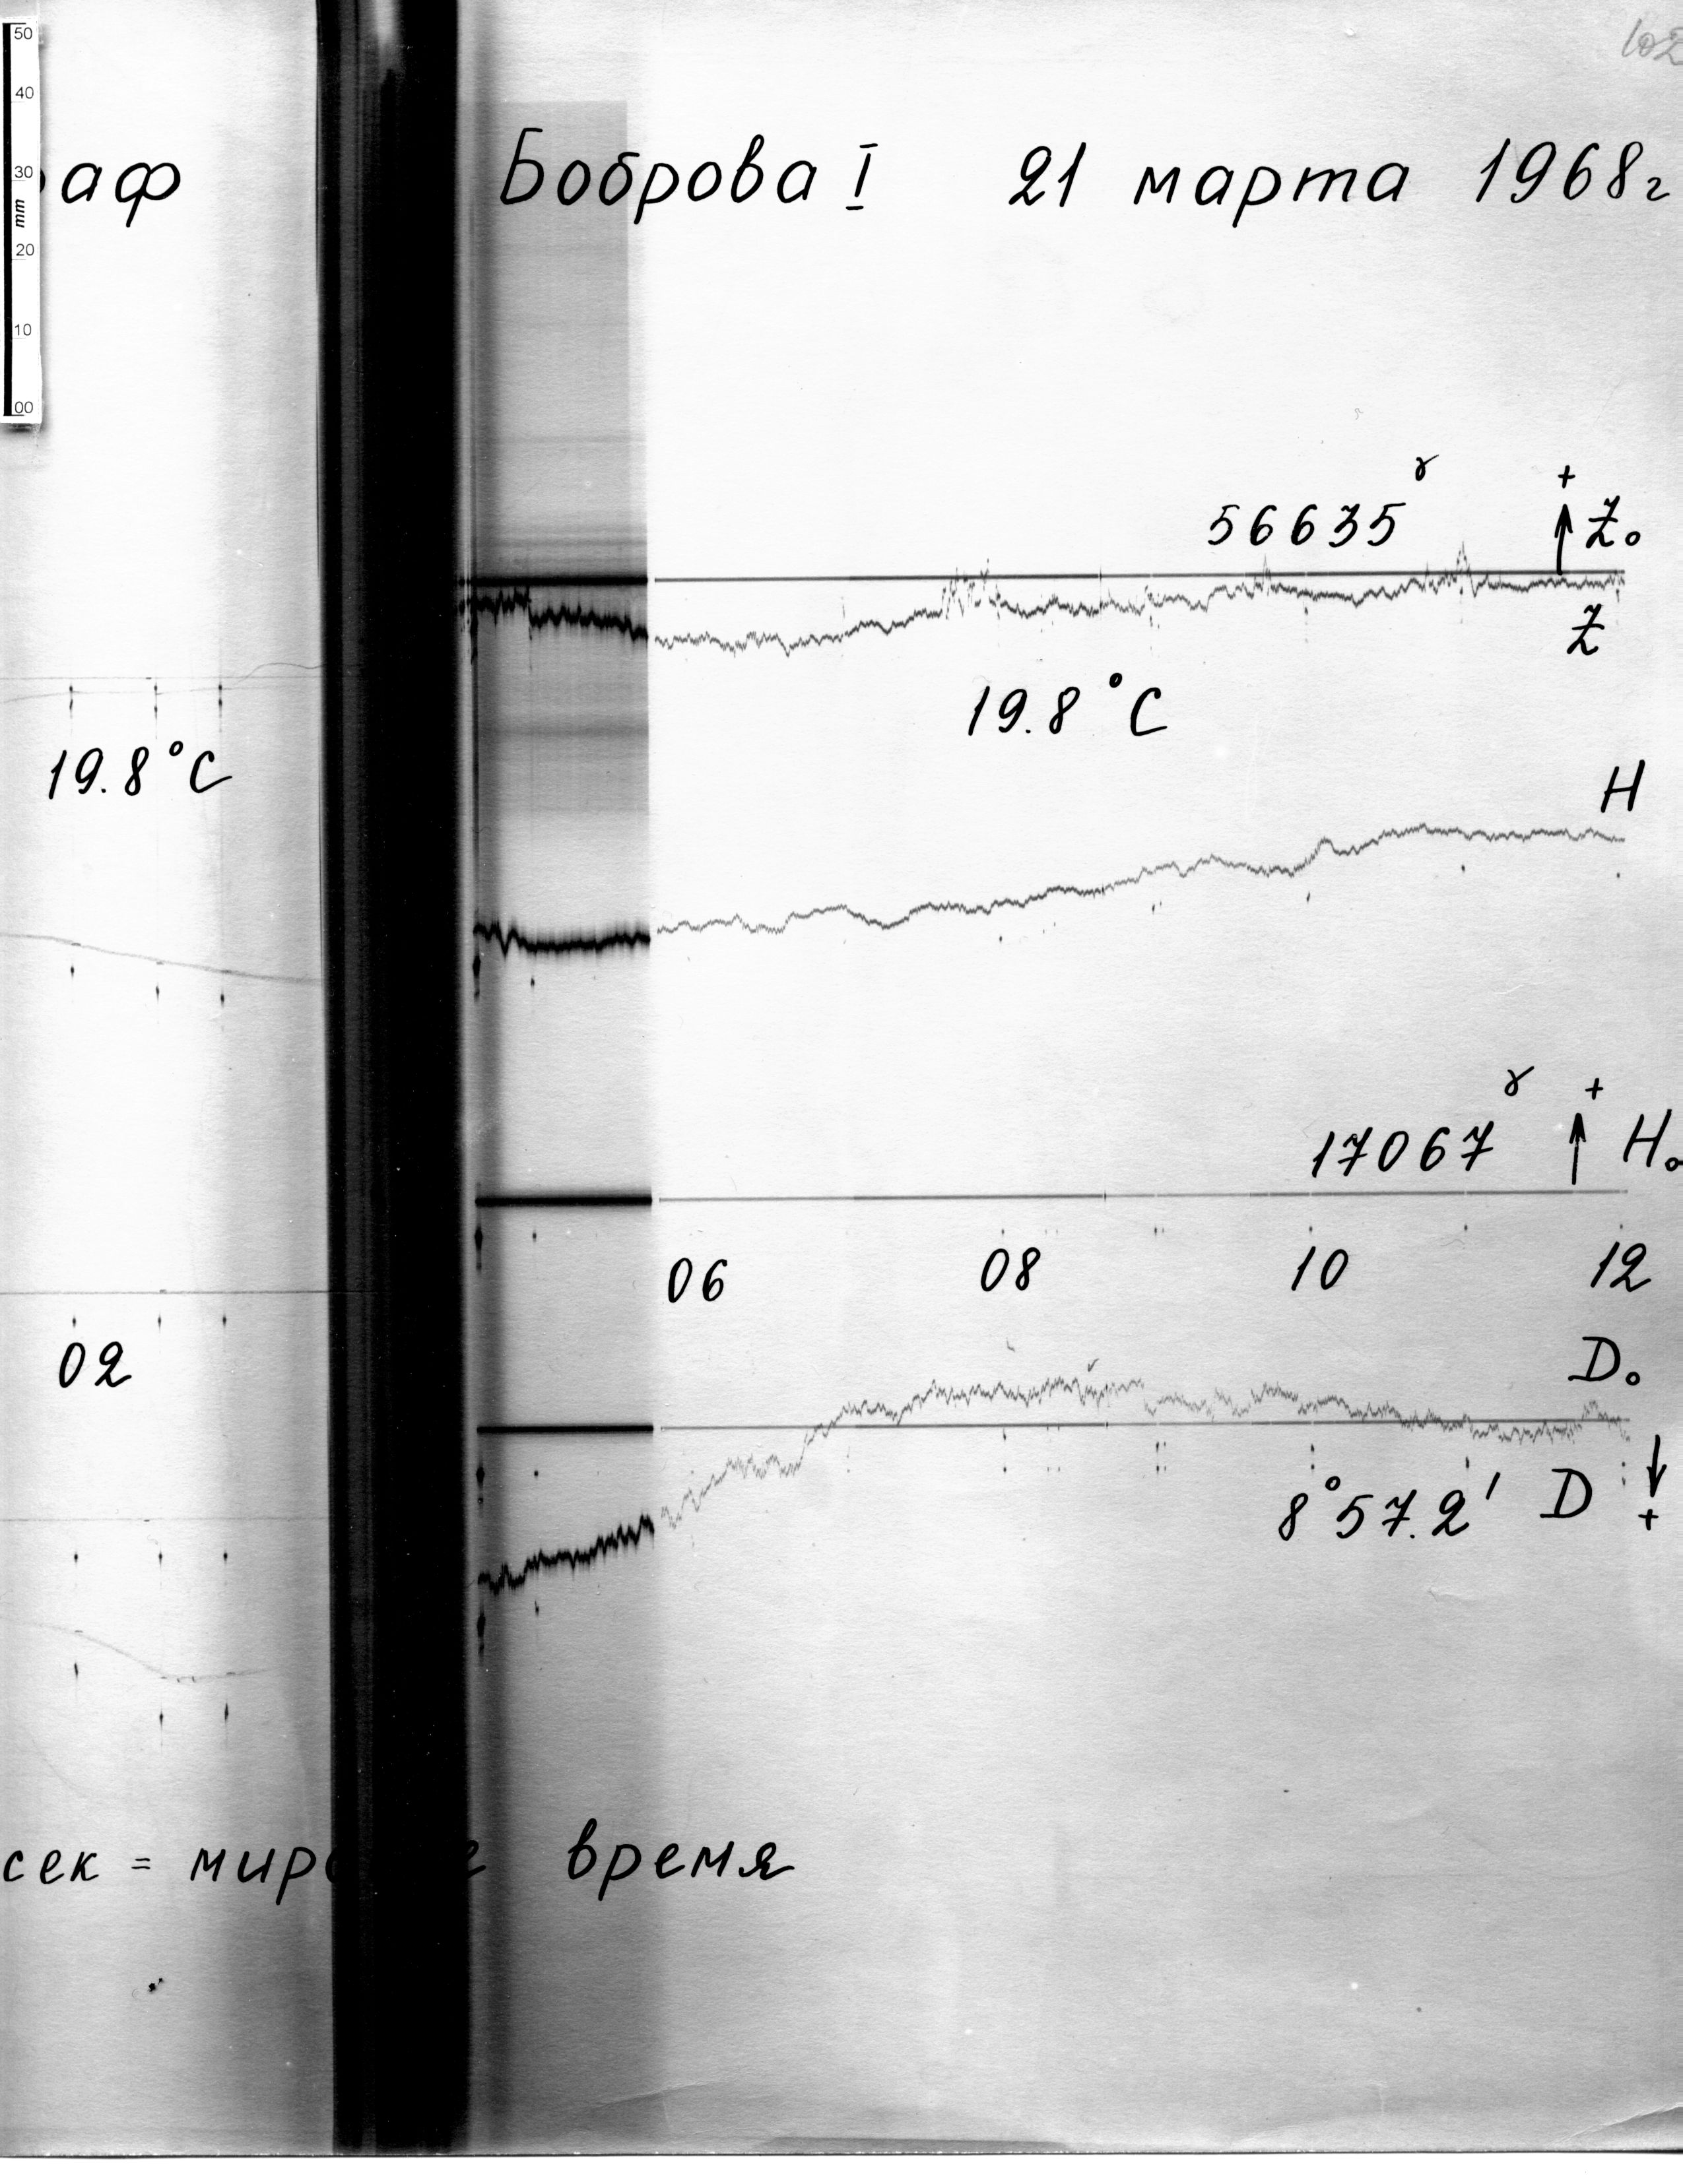 50
40
30
mm
20
10
00
аф Боброва I 21 марта 1968г
56635ᵞ + Z₀
Z
19.8°C
19.8°C
H
17067ᵞ + H₀
06 08 10 12
02
D₀
8°57.2′ D +
сек = мир время